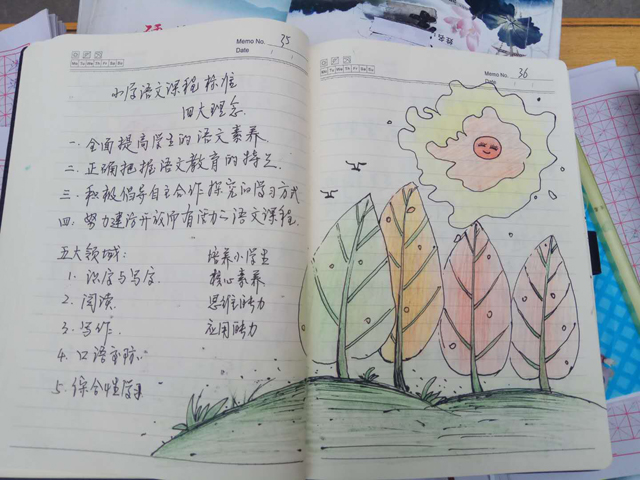 Memo No. 35
Date
Mo Tu We Th Fr Sa Su
小学语文课程标准
四大理念
一. 全面提高学生的语文素养
二. 正确把握语文教育的特点
三. 积极倡导自主合作探究的学习方式
四. 努力建设开放而有活力的语文课程.
五大领域:
1. 识字与写字
2. 阅读
3. 写作
4. 口语交际
5. 综合性学习
培养小学生
核心素养
思维能力
应用能力
Memo No. 36
Date
Mo Tu We Th Fr Sa Su
姓名